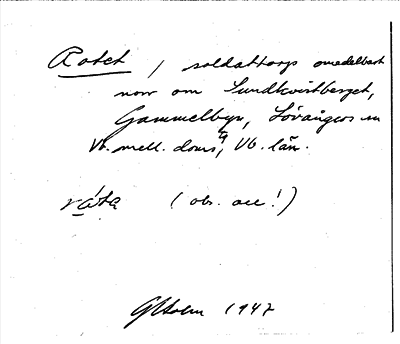 Rotet / soldattorp omedelbart
norr om Lundkvistberget,
Gammelbyn, Lövångers sn
Vb. mell. doms, Vb. län.
råta (obs. acc!)
G Holm 1947